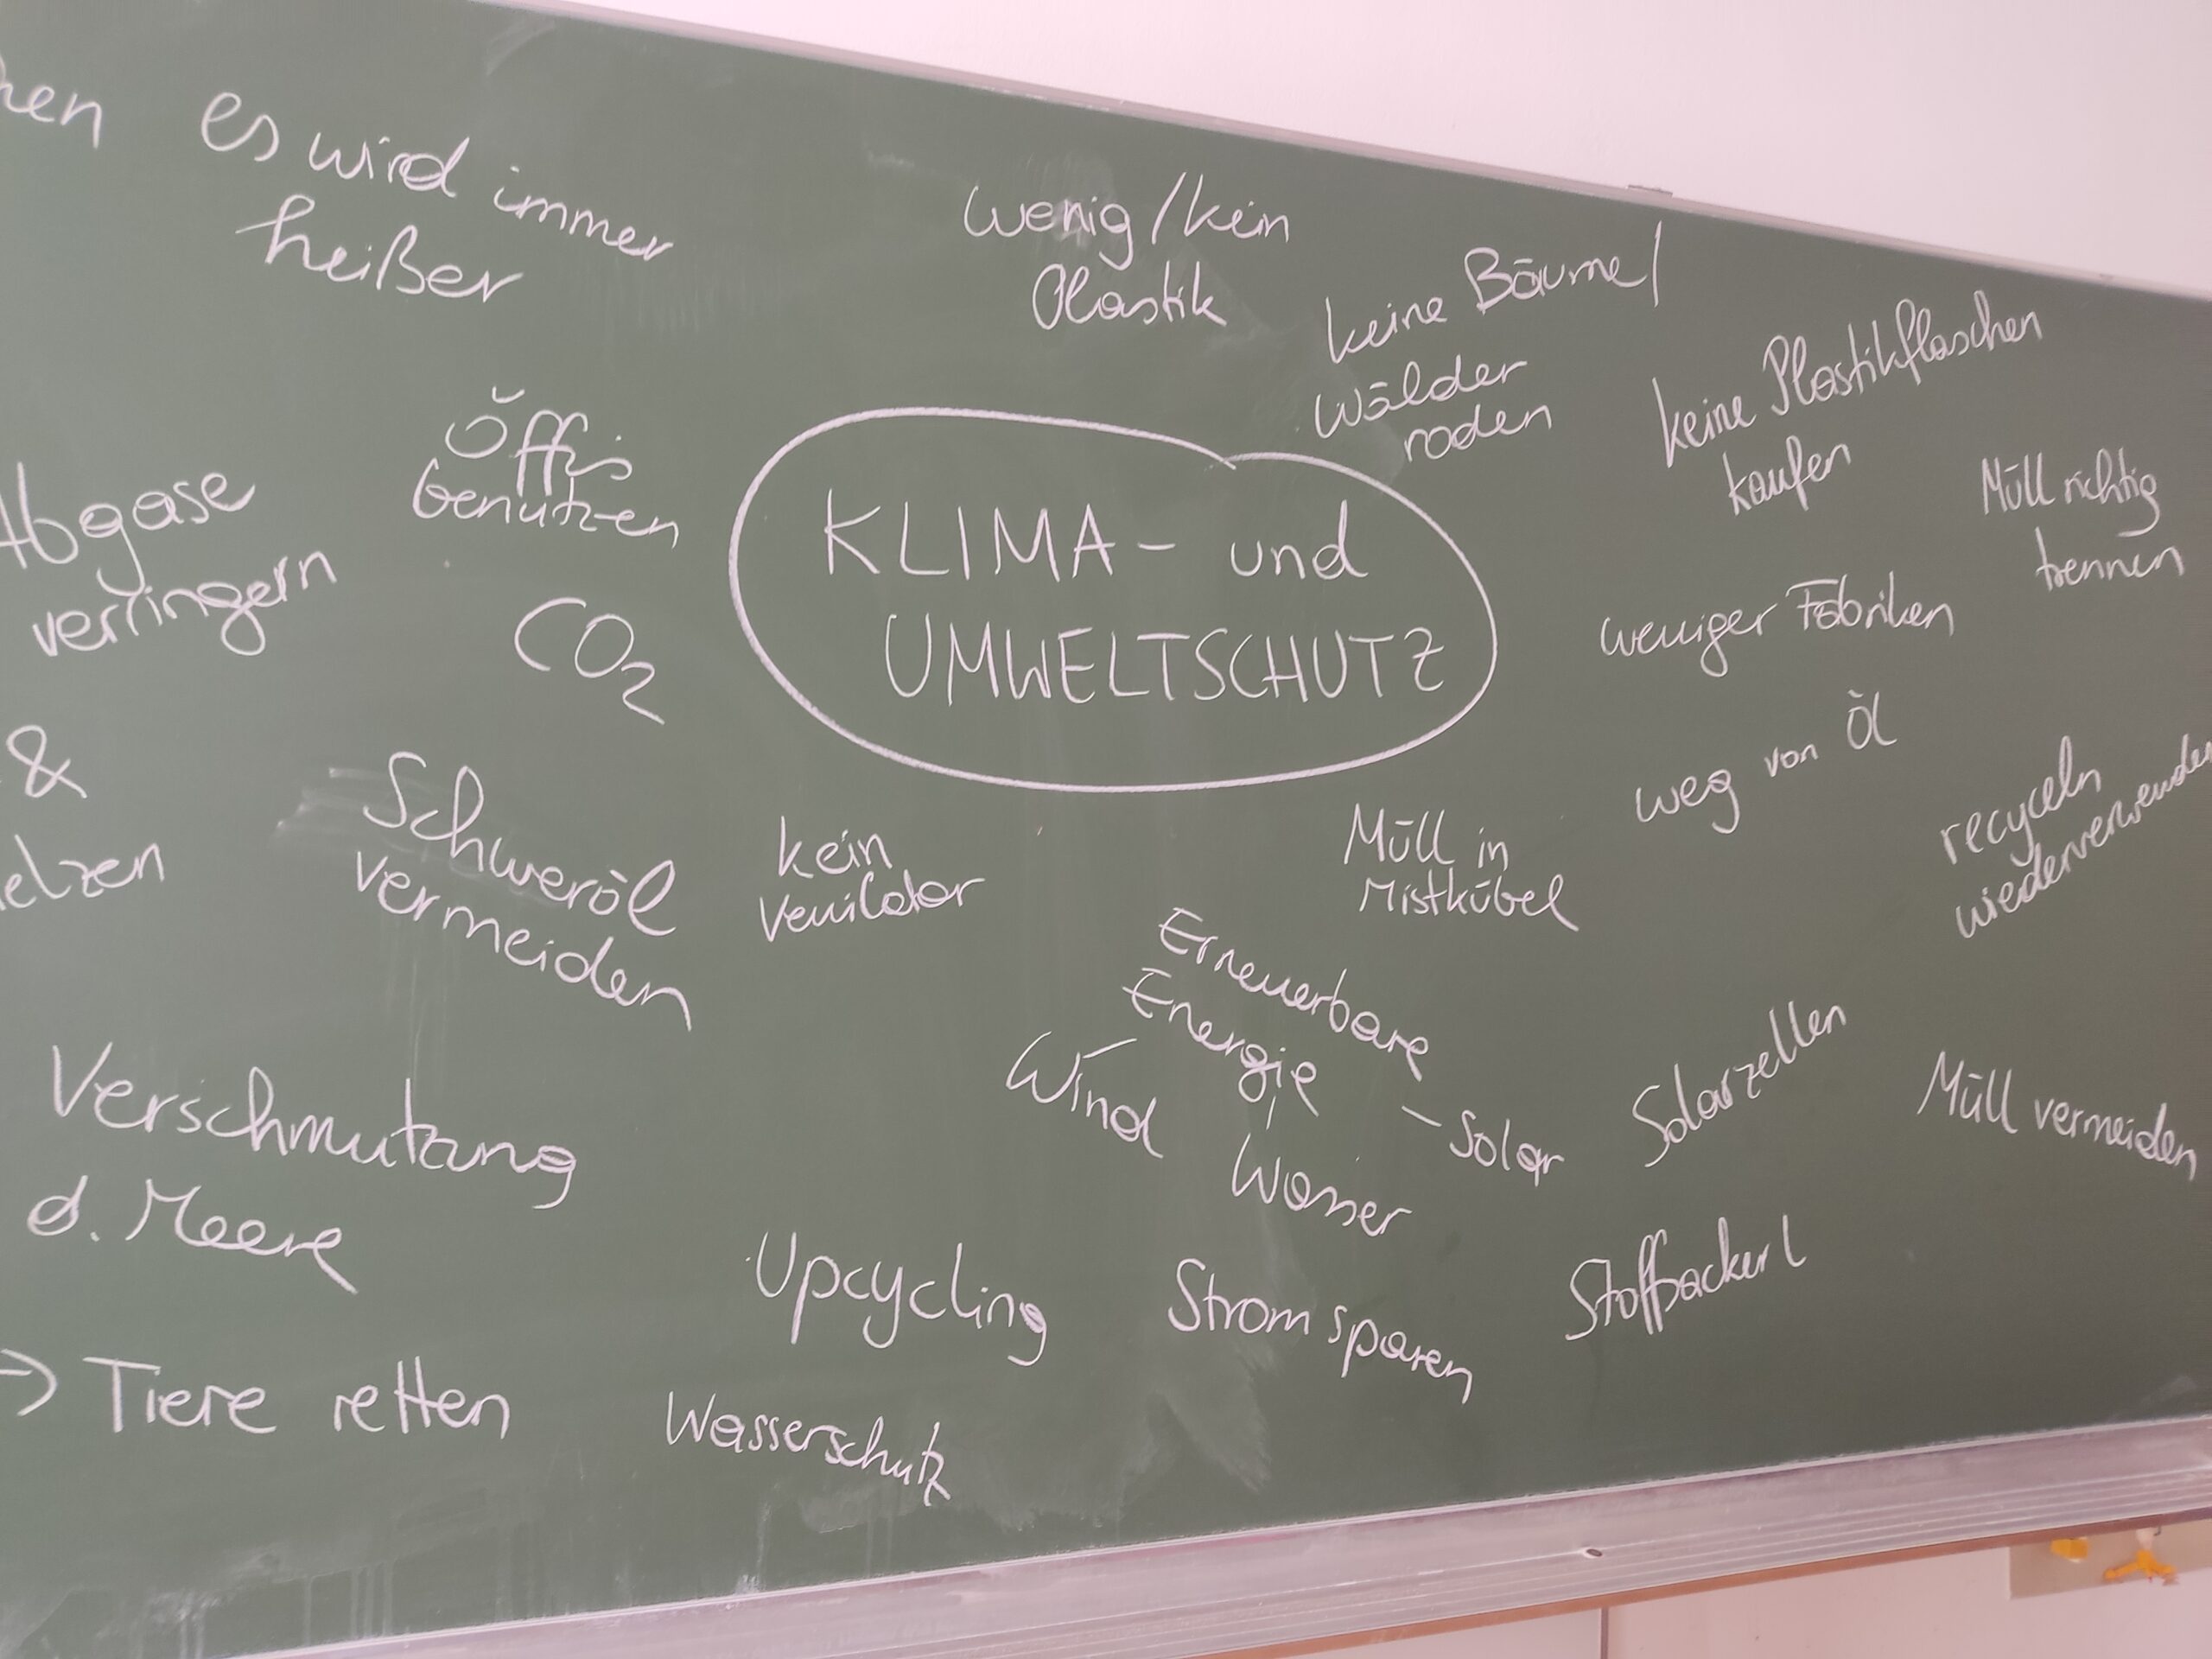 es wird immer
heißer
wenig/kein
Plastik
keine Bäume/
Wälder
roden
keine Plastikflaschen
kaufen
Müll richtig
trennen
Öffis
benützen
Abgase
verringern
CO2
KLIMA- und
UMWELTSCHUTZ
weniger Fabriken
weg von Öl
recyceln
&
Schweröl
vermeiden
kein
Müll in
Mistkübel
Erneuerbare
Energie
Wind
- Solar
Wasser
Solarzellen
Müll vermeiden
Verschmutzung
d. Meere
Upcycling
Strom sparen
Stoffsackerl
→ Tiere retten
Wasserschutz